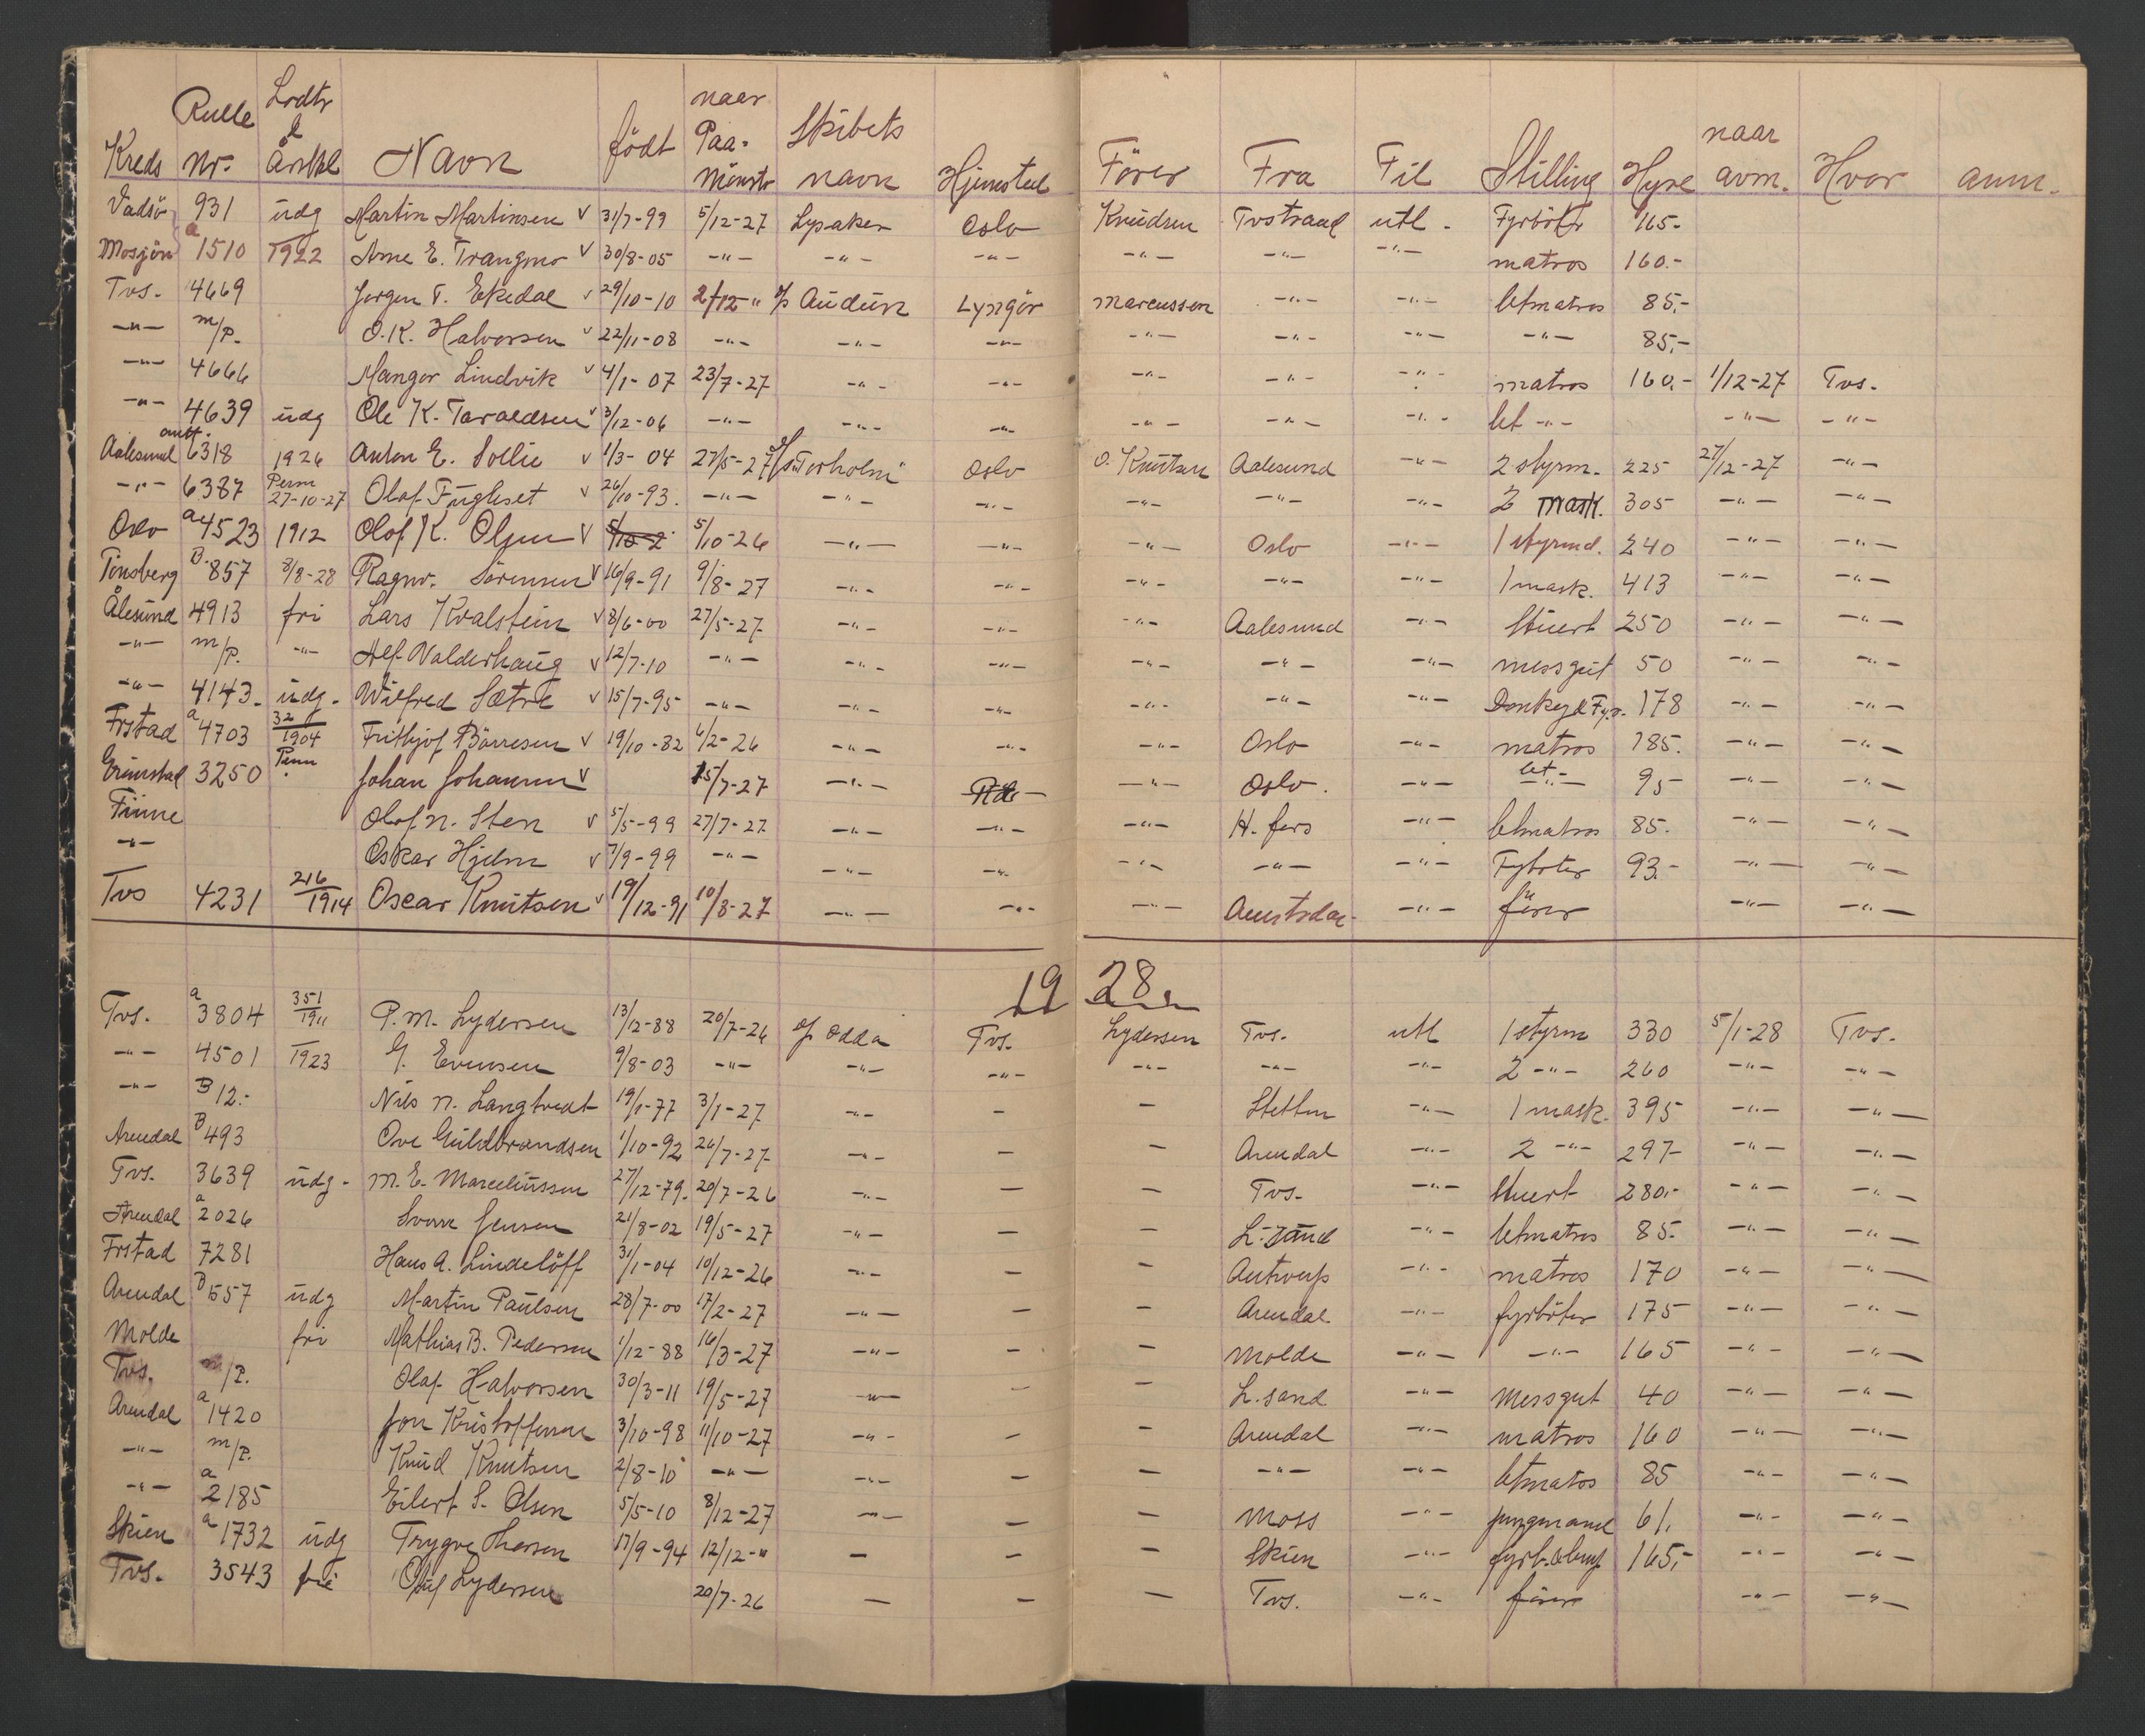 Kreds Rulle nr. Lodtr & Årskl Navn födt naar Paa-mönstr Skibets navn Hjemsted Förer Fra Til Stilling Hyre naar avm. Hvor anm.
Vadsö 931 udg Martin Martinsen v 31/7-99 5/12-27 Lysaker Oslo Knudsen Tvstrand utl. Fyrböter 165.-
Mosjöen a 1510 1922 Arne E. Trangmo v 30/8-05 -"- -"- -"- -"- -"- -"- matros 160.-
Tvs. 4669 Jörgen T. Ekedal v 29/10-10 2/12-" s/s Audun Lyngör Marcussen -"- -"- letmatros 85.-
-"- m/p. O.K. Halvorsen v 22/11-08 -"- -"- -"- -"- -"- -"- -"- 85.-
-"- 4666 Mangor Lindvik v 4/1-07 23/7-27 -"- -"- -"- -"- -"- matros 160.- 1/12-27 Tvs.
-"- 4639 udg Ole K. Taraldsen v 3/12-06 -"- -"- -"- -"- -"- -"- let -"- -"- -"-
Aalesund 6318 1926 Anton E. Sollie v 1/3-04 27/5-27 s/s "Torholm" Oslo O. Knutsen Aalesund -"- 2 styrm. 225 27/12-27 -"-
-"- 6387 Perm 27-10-27 Olaf Fugleset v 26/10-93. -"- -"- -"- -"- -"- -"- 2 mask. 305 -"- -"-
Oslo a 4523 1912 Olof K. Olsen v 5/10-2 5/10-26 -"- -"- -"- Oslo -"- 1 styrmd. 240 -"- -"-
Tönsberg B. 857 8/8-28 Ragnv. Sörensen v 16/9-91 9/8-27 -"- -"- -"- -"- -"- 1 mask. 413 -"- -"-
Ålesund 4913 fri Lars Kvalstein v 8/6-00 27/5-27 -"- -"- -"- Aalesund -"- Stuert 250 -"- -"-
-"- m/p. -"- Alf Valderhaug v 12/7-10 -"- -"- -"- -"- -"- -"- messgut 50 -"- -"-
-"- 4143. udg. Wilfred Sætre v 15/7-95 -"- -"- -"- -"- -"- -"- Donkey & Fyr. 178 -"- -"-
Frstad a 4703 32/1904 Frithjof Börresen v 19/10-82 6/2-26 -"- -"- -"- Oslo -"- matros 185. -"- -"-
Grimstad 3250 Perm Johan Johansen v 15/7-27 -"- -"- Oslo. -"- let -"- 95 -"- -"-
Finne Olof N. Sten v 5/5-99 27/7-27 -"- -"- -"- H. fors -"- letmatros 85. -"- -"-
-"- Oskar Hjelm v 7/9-99 -"- -"- -"- -"- -"- -"- Fyböter 93.- -"- -"-
Tvs 4231 216/1914 Oscar Knutsen v 19/12-91 10/8-27 -"- -"- -"- Amstrdar -"- förer -"- -"-
1928
Tvs. a 3804 351/1911 P.M. Lydersen 13/12-88 20/7-26 s/s Odda Tvs. Lydersen Tvs. utl 1 styrm 330 5/1-28 Tvs.
-"- 4501 1923 G. Evensen 9/8-03 -"- -"- -"- -"- -"- -"- 2 -"- 260 -"- -"-
-"- B 12.- Nils N. Langtvedt 19/1-77 3/1-27 -"- - - Stettin -"- 1 mask. 395 -"- -"-
Arendal B 493 Ove Guldbrandsen 1/10-92 26/7-27 -"- - - Arendal -"- 2 -"- 297- -"- -"-
Tvs. 3639 udg. M.E. Marceliussen 27/12-79. 20/7-26 -"- - - Tvs. -"- Stuert 280.- -"- -"-
Arendal a 2026 Sverre Jensen 21/8-02 19/5-27 -"- - - L-sand -"- letmatros 85. -"- -"-
Frstad 7281 Hans A. Lindelöff 31/1-04 10/12-26 -"- - - Antverp -"- matros 170 -"- -"-
Arendal B 557 udg Martin Paulsen 28/7-00 17/2-27 -"- - - Arendal. -"- fyrböter 175 -"- -"-
Molde fri Mathias B. Pedersen 1/12-88 16/3-27 -"- - - Molde -"- -"- 165 -"- -"-
Tvs. m/p. Olaf Halvorsen 30/3-11 19/5-27 -"- - - L.sand -"- Messgut 40 -"- -"-
Arendal a 1420 Jon Kristoffersen 3/10-98 11/10-27 -"- - - Arendal -"- matros 160 -"- -"-
-"- m/p. Knud Knutsen 2/8-10 -"- -"- - - -"- -"- letmatros 85 -"- -"-
-"- a 2185 Eilert S. Olsen 5/5-10 8/12-27 -"- - - Moss -"- jungmand 61. -"- -"-
Skien a 1732 udg Trygve 17/9-94 12/12-" - - - Skien -"- fyrb. 165.- -"- -"-
Tvs. 3543 fri Lydersen 20/7-26 - - - Tvs. -"- förer -"- -"-